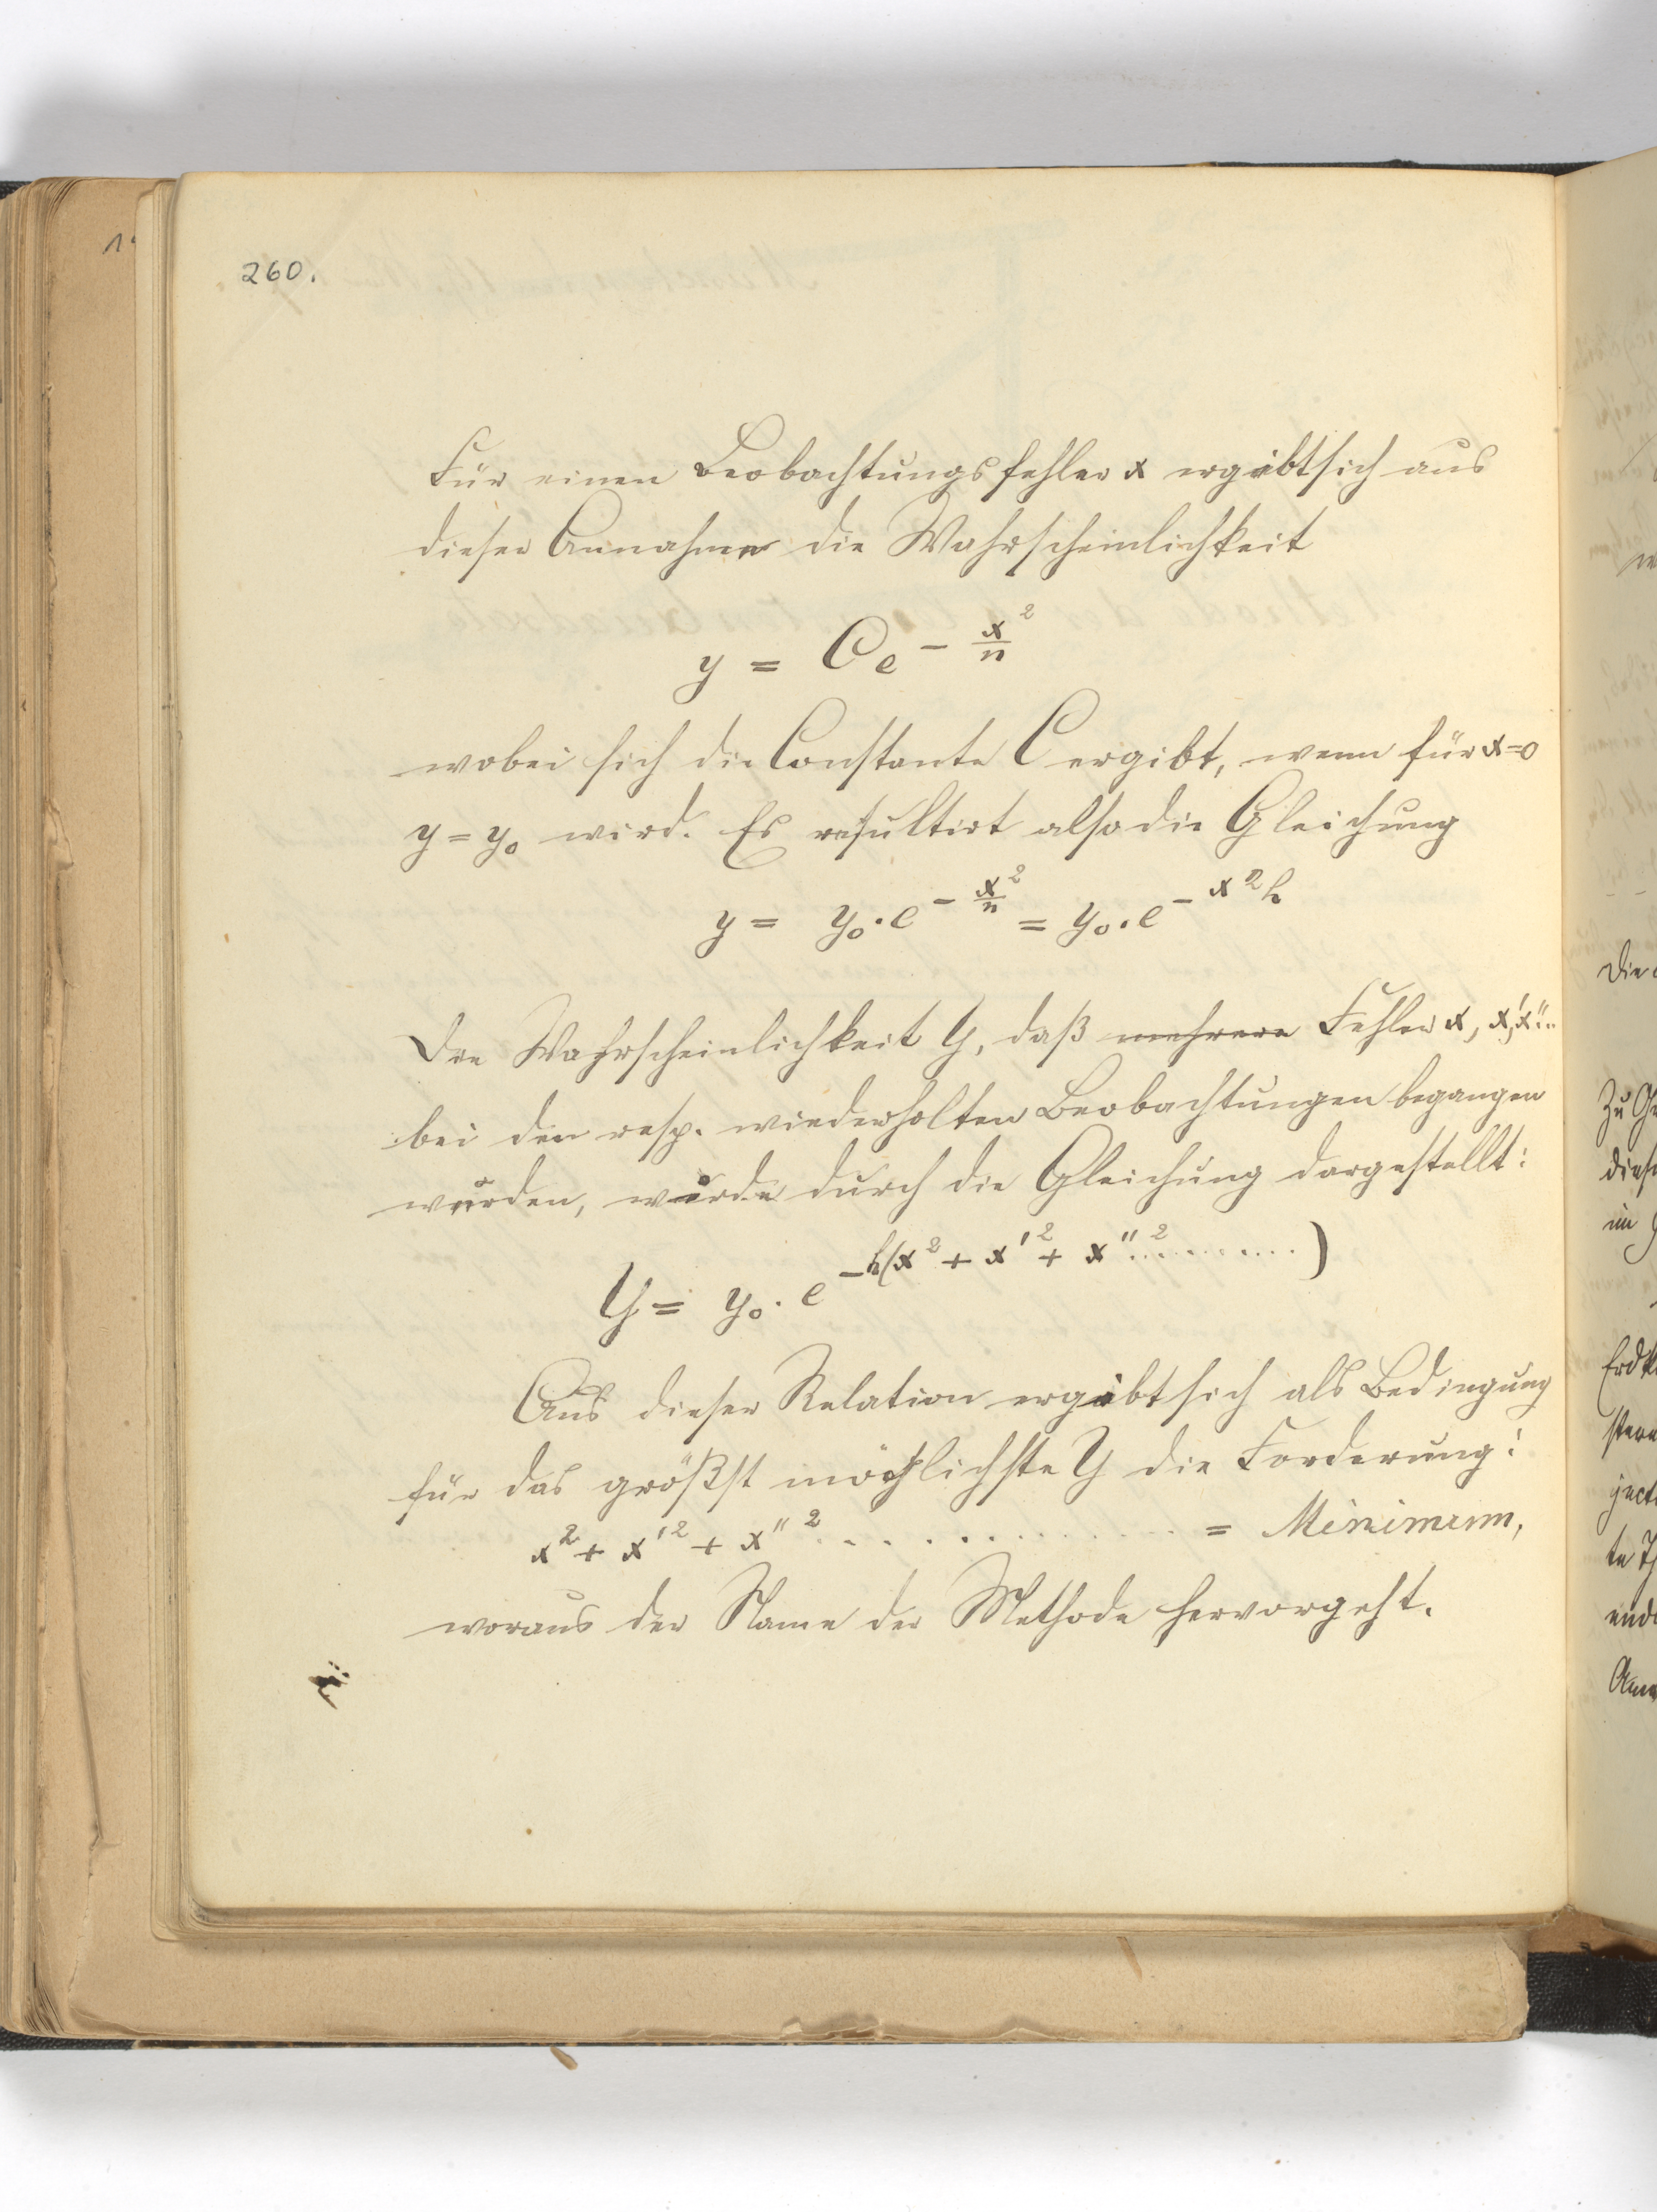 260.
Für einen Beobachtungsfehler x ergibt sich aus
dieser Annahme die Wahrscheinlichkeit
y = C e^{- x²/n}
wobei sich die Constante C ergibt, wenn für x=0
y=y₀ wird. Es resultirt also die Gleichung
y = y₀ · e^{- x²/n} = y₀ · e^{- x²h}
Die Wahrscheinlichkeit Y, daß mehrere Fehler x, x', x''...
bei den resp. wiederholten Beobachtungen begangen
wurden, wurde durch die Gleichung dargestellt:
Y = y₀ · e^{-h(x² + x'² + x''² ..........)}
Aus dieser Relation ergibt sich als Bedingung
für das größst möglichste Y die Forderung:
x² + x'² + x''² .............. = Minimum,
woraus der Name der Methode hervorgeht.